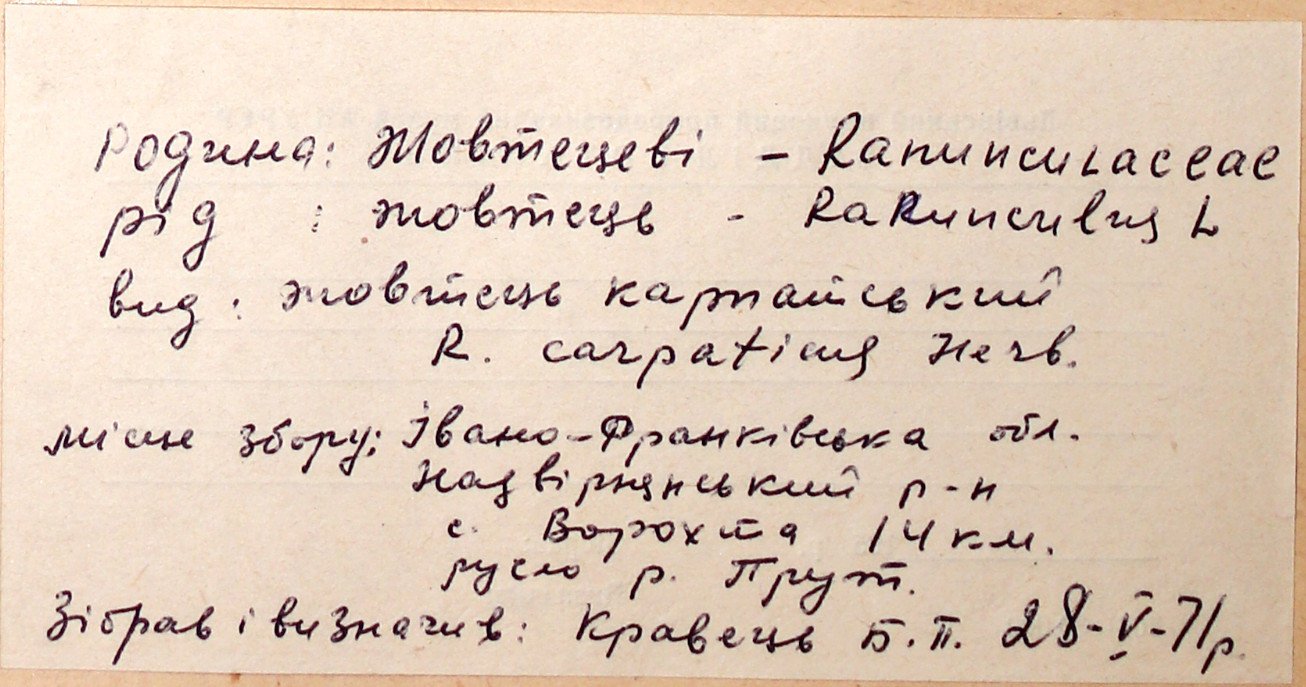 Родина: Жовтецеві - Ranunculaceae
рід : жовтець - Ranunculus L
вид: жовтець карпатський
R. carpaticus Herb.
місце збору: Івано-Франківська обл.
Надвірнянський р-н
с. Ворохта 14 км.
русло р. Прут.
Зібрав і визначив: Кравець Б.П. 28-V-71р.